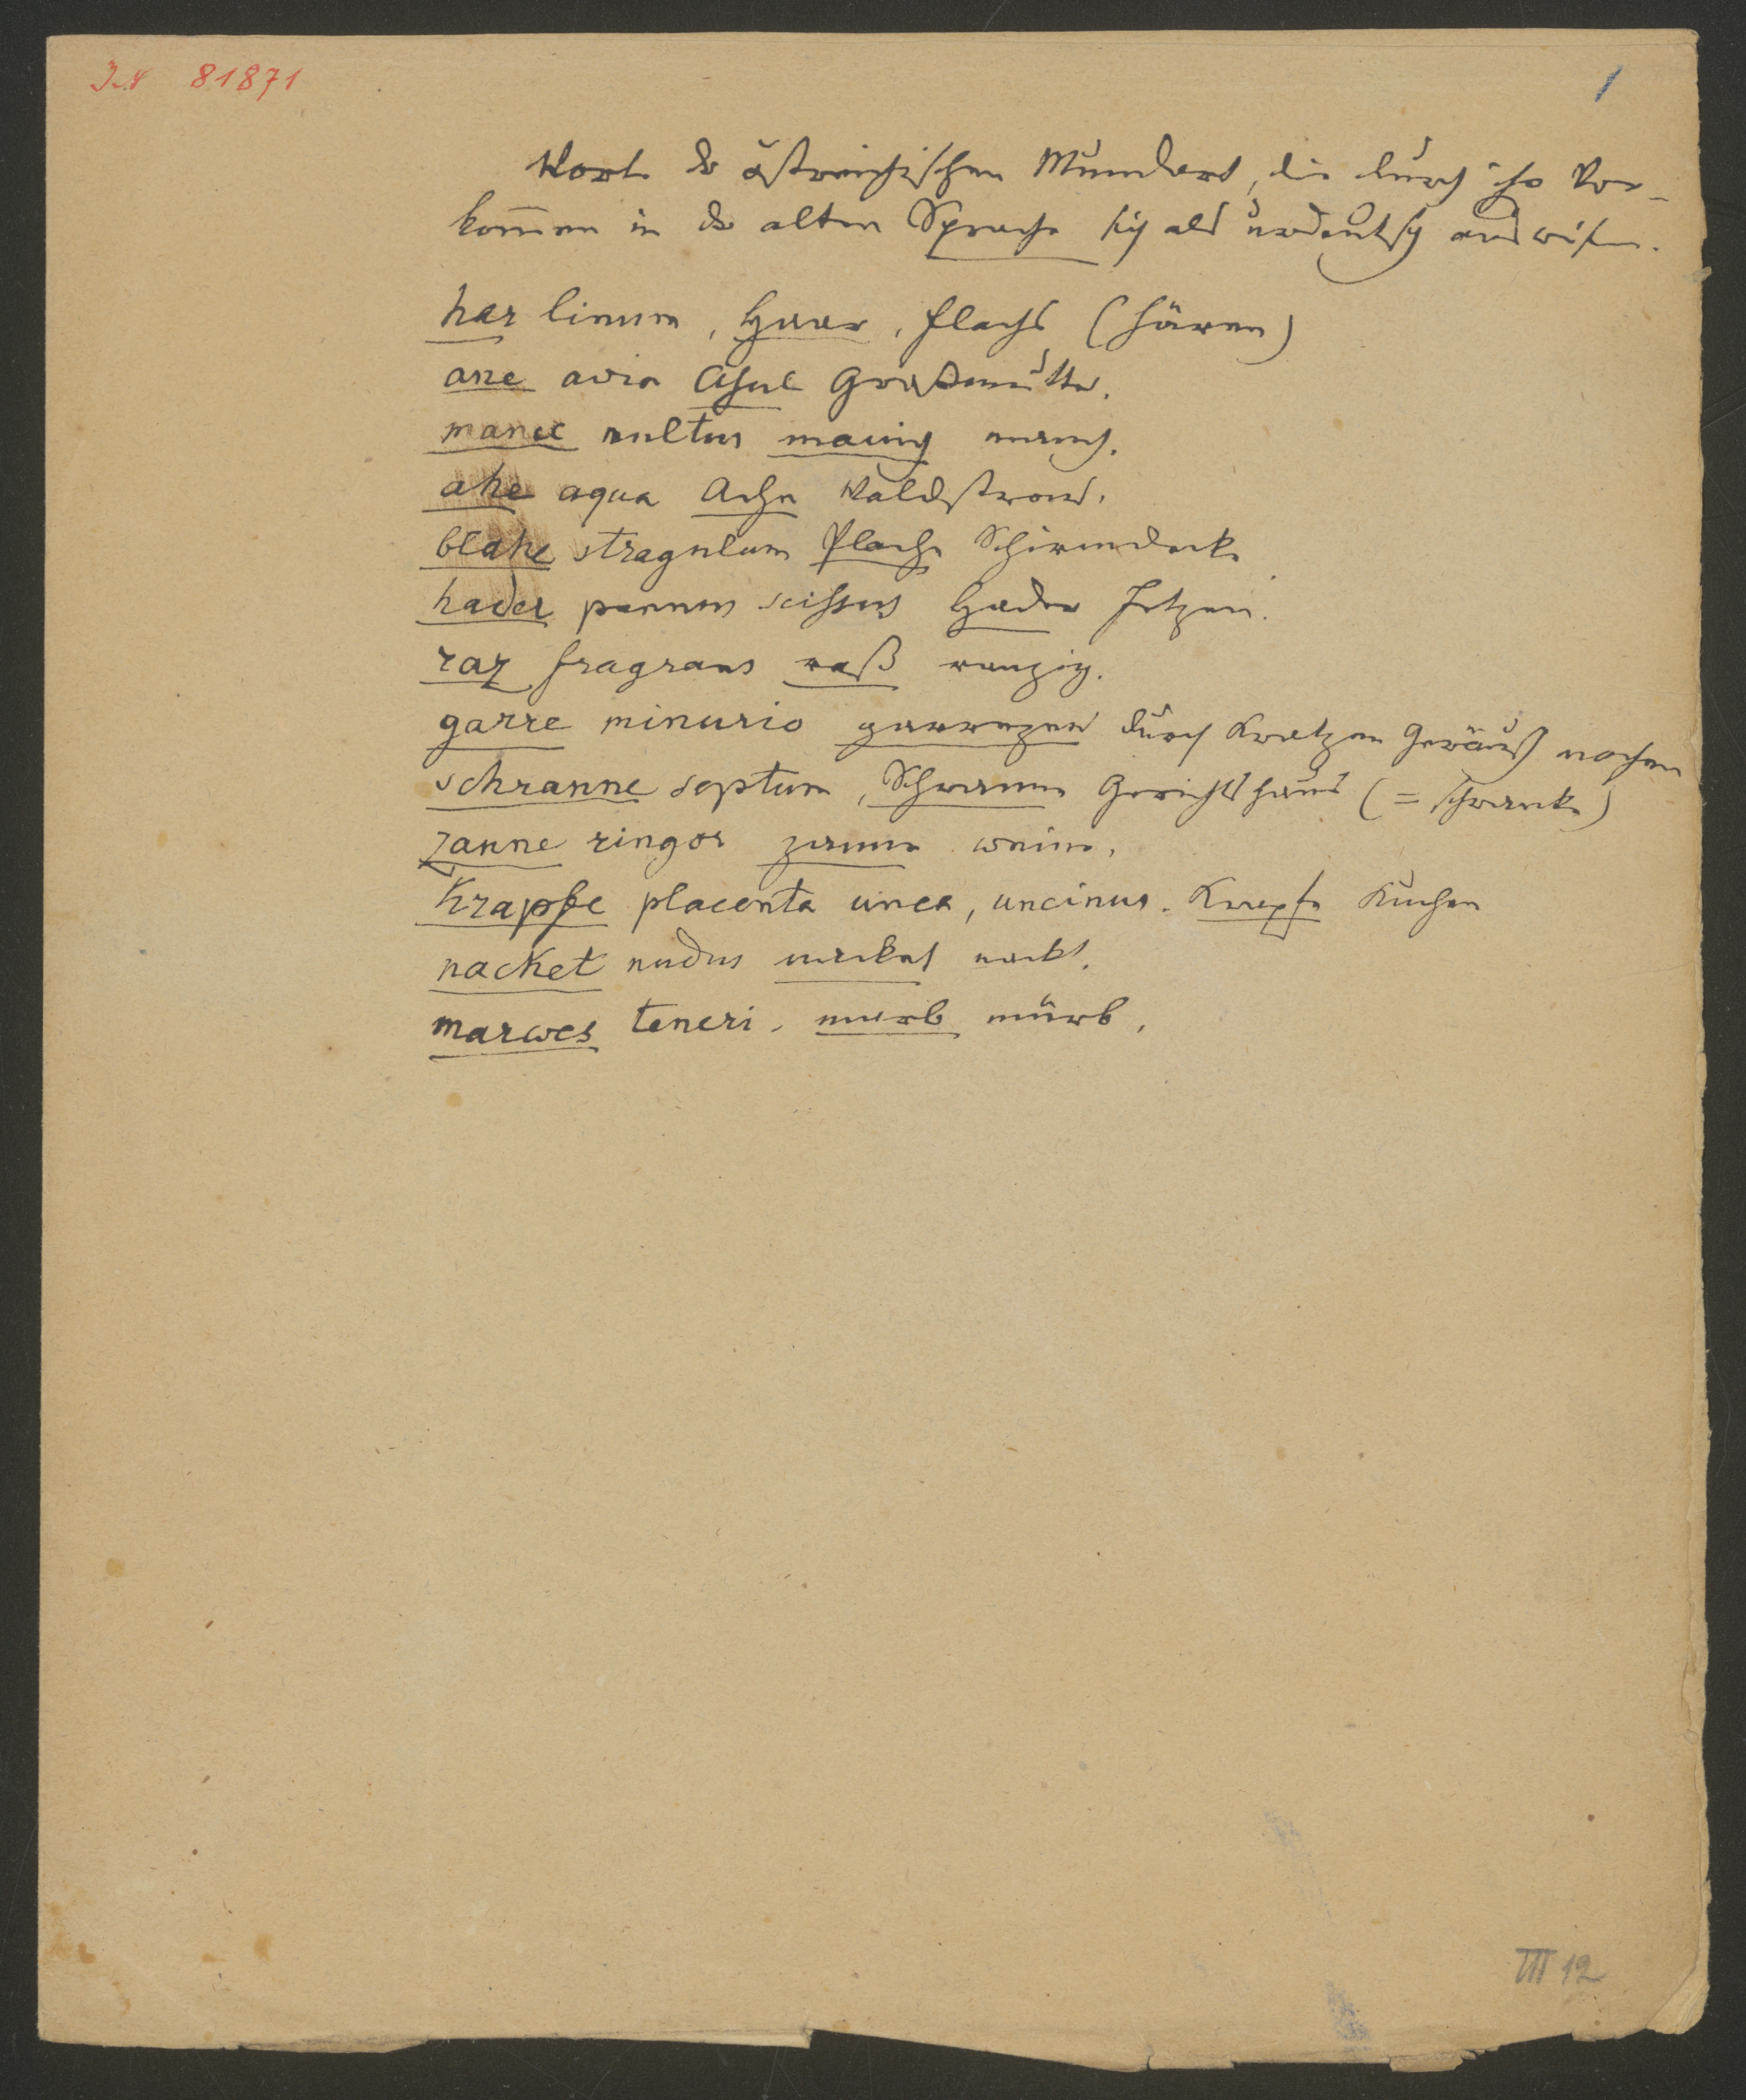 I.N 81871
1
Worte der östreichischen Mundart, die durch ihr Vor-
kom̅en in der alten Sprache sich als urdeutsch ausweisen.
har linum, Haar, Flachs (härren)
ane avia Ahnl Großmutter.
manec multus manig manch.
ahe aqua Ache Waldstrom.
blahe stragulum Plache Schirmdecke
hader pannus scissus Hader Fetzen.
raz fragrans raß ranzig.
garre minurio garrezen durch Kratzen Geräusch machen
schranne septum, Schranne Gerichtshaus (= schranke)
zanne ringor zanne weine.
Krapfe placenta unca, uncinus. Krapfe Kuchen
nacket nudus nacket nackt.
marwes teneri. murb mürb.
III 12